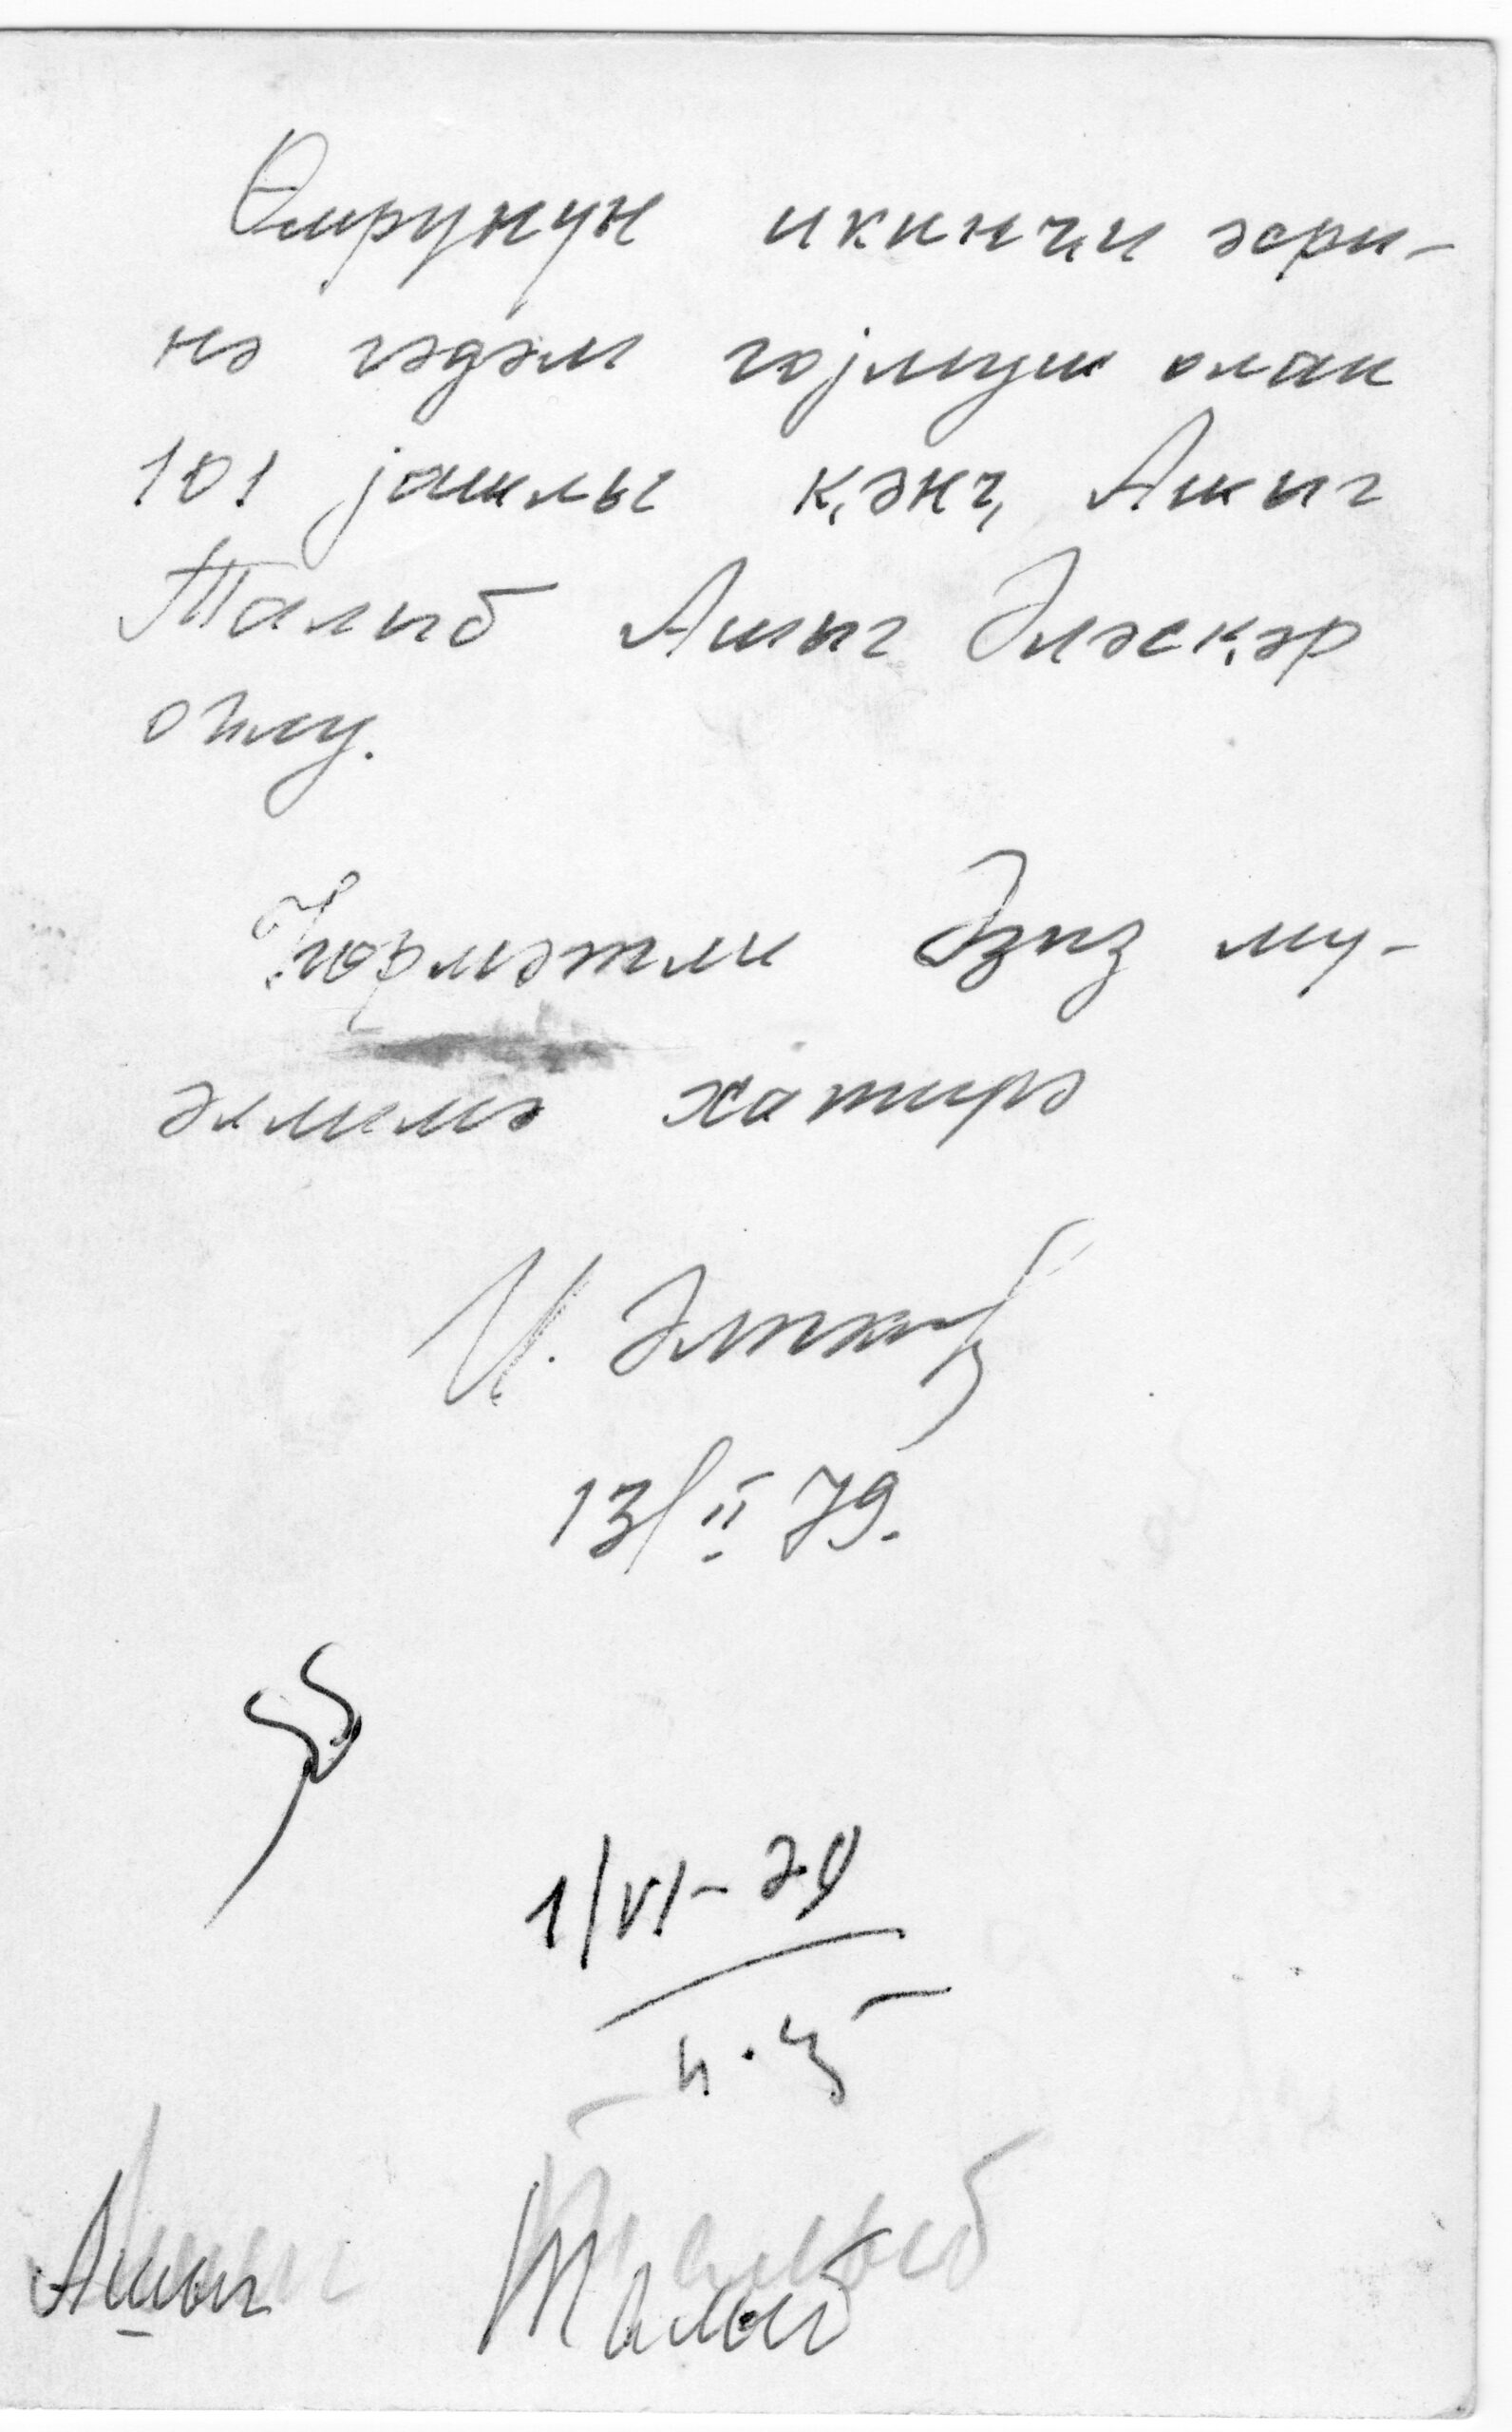 Өмрүнүн икинчи әсри-
нә гәдәм гојмуш олан
101 јашлы ҝәнҹ Ашыг
Талыб Ашыг Әләскәр
оғлу.
Һөрмәтли Әзиз мү-
әллимә хатирә
И.
13/II 79.
1/VI-
Ашыг Талыб